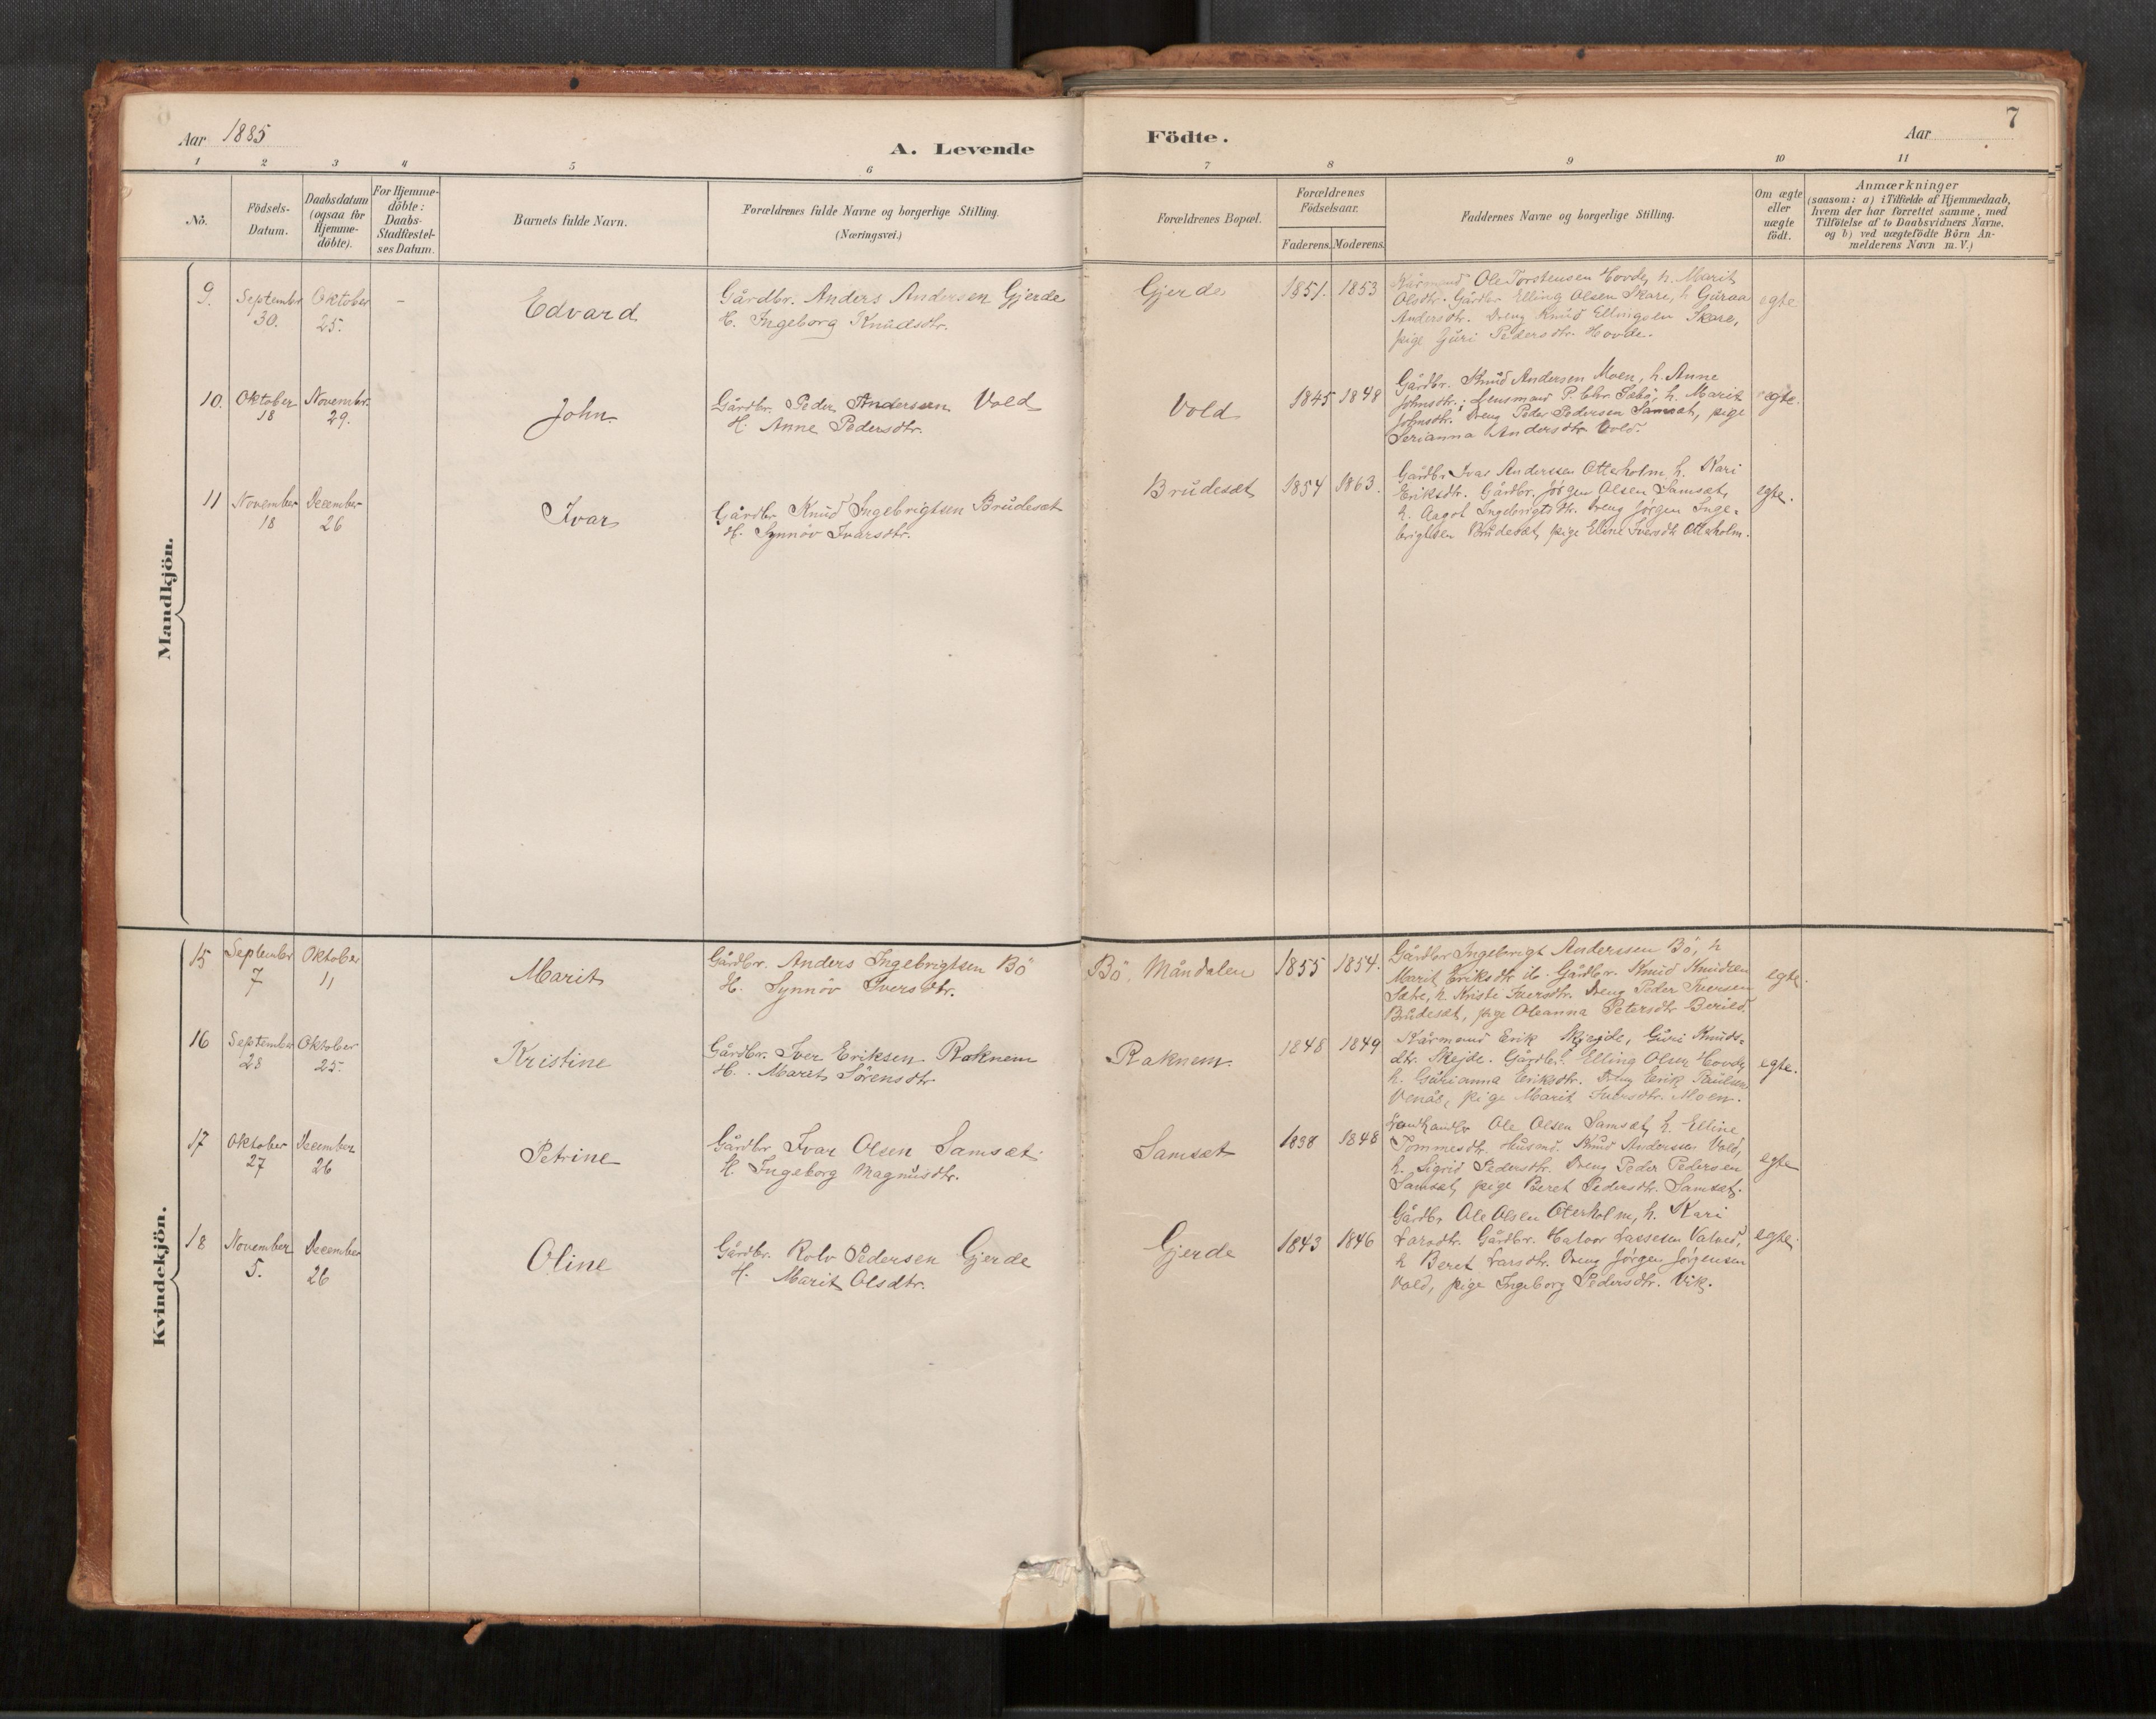 Aar 1885
A. Levende
Födte.
Aar
7
1 2 3 4 5 6 7 8 9 10 11
No.
Födsels-
Datum.
Daabsdatum
(ogsaa for
Hjemme-
döbte).
For Hjemme-
döbte:
Daabs-
Stadfæstel-
ses Datum.
Barnets fulde Navn.
Forældrenes fulde Navne og borgerlige Stilling.
(Næringsvei.)
Forældrenes Bopæl.
Forældrenes
Födselsaar.
Faderens. Moderens.
Faddernes Navne og borgerlige Stilling.
Om ægte
eller
uægte
födt.
Anmærkninger
(saasom: a) i Tilfælde af Hjemmedaab,
hvem der har forrettet samme, med
Tilföielse af to Daabsvidners Navne.
og b) ved uægtefödte Börn An-
melderens Navn m. V.)
Mandkjön.
9. Septembr 30. Oktober 25. -
Edvard
Gårdbr. Anders Andersen Gjerde
H. Ingeborg Knudsdtr.
Gjerde
1851. 1853
Kårmand Ole Torstensen Hovde, h. Marit
Olsdtr. Gårdbr Elling Olsen Skare, h Guraa
Andersdtr. Dreng Knud Ellingsen Skare,
pige Guri Pedersdtr. Hovde.
egte
10. Oktober 18 Novembr. 29.
John
Gårdbr. Peder Andersen Vold
H. Anne Pedersdtr.
Vold
1845 1848
Gårdbr. Knud Andersen Moen, h. Anne
Johnsdtr.; Lensmand P. Chr. Sæbö, h. Marit
Johnsdtr. Dreng Peder Pedersen Samsæt, pige
Serianna Andersdtr. Vold.
egte.
11 November 18 December 26
Ivar
Gårdbr Knud Ingebrigtsen Brudesæt
H. Synnöv Ivarsdtr.
Brudesæt
1854 1863.
Gårdbr Ivar Anderssen Otterholm, h. Kari
Eriksdtr. Gårdbr. Jörgen Olsen Samsæt,
h. Aagot Ingebrigtsdtr. Dreng Jörgen Inge-
brigtsen Brudesæt, pige Eline Iversdtr Otterholm.
egte.
Kvindekjön.
15 September 7 Oktober 11
Marit
Gårdbr. Anders Ingebrigtsen Bö
H. Synnöv Iversdtr.
Bö, Måndalen
1855 1854.
Gårdbr Ingebrigt Anderssen Bö, h
Marit Eriksdtr ib. Gårdbr. Knud Knudsen
Sætre, h Kristi Iversdtr. Dreng Peder Iversen
Brudesæt, pige Oleanna Petersdtr Berild.
egte.
16 September 28 Oktober 25.
Kristine
Gårdbr. Iver Eriksen Raknem
H. Marit Sörensdtr
Raknem.
1848 1849
Kårmand Erik Skjejde, Guri Knuds-
dtr. Skejde. Gårdbr. Elling Olsen Hovde,
h. Gurianna Eriksdtr. Dreng Erik Paulsen
Venås, pige Marit Iversdtr. Moen.
egte.
17 Oktober 27 December 26
Petrine
Gårdbr Ivar Olsen Samsæt.
H. Ingeborg Magnusdtr.
Samsæt
1838 1848
Landhandlr Ole Olsen Samsæt, h. Elline
Tommesdtr. Husmd. Knud Anderssen Vold,
h. Sigrid Pedersdtr. Dreng Peder Pedersen
Samsæt, pige Beret Pedersdtr. Samsæt.
egte
18 November 5. December 26
Oline
Gårdbr. Rolv Pedersen Gjerde
H. Marit Olsdtr.
Gjerde
1843 1846
Gårdbr Ole Olsen Oterholm, h. Kari
Larsdtr. Gårdbr. Halvor Lassesen
h Beret Larsdtr. Dreng Jörgen Jörgensen
Vold, pige Ingeborg Pedersdtr. Vik.
egte.